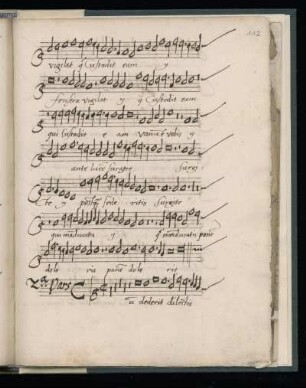 112
vigilat q Custodit eum y
frustra vigilat y q Custodit eum
qui Custodit eam vanū est vobis y
ante lucē surgere Surgi
te y postq̄ sede ritis surgite
qui manducatis y q manducatis pane
dolo ris panē dolo ris
2a Pars
dederit dilectis